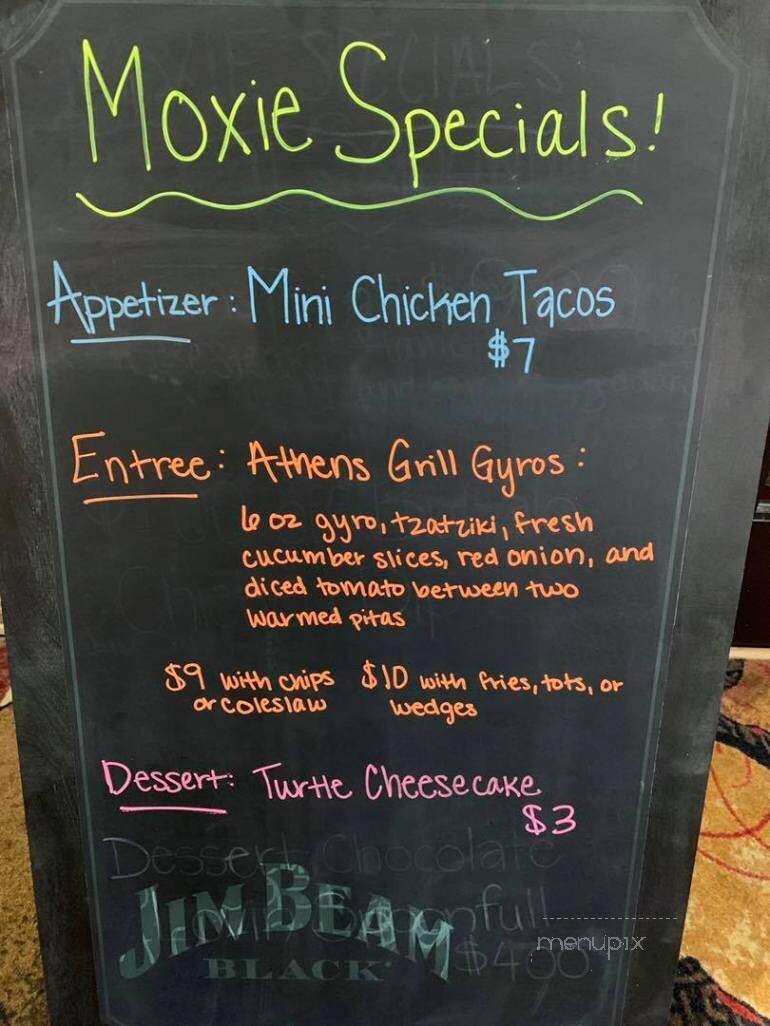 Moxie Specials!
Appetizer: Mini Chicken Tacos
$7
Entree: Athens Grill Gyros:
6 oz gyro, tzatziki, fresh
cucumber slices, red onion, and
diced tomato between two
warmed pitas
$9 with chips $10 with fries, tots, or
or coleslaw wedges
Dessert: Turtle Cheesecake
$3
Dessert Chocolate
JIM BEAM
BLACK
menupix